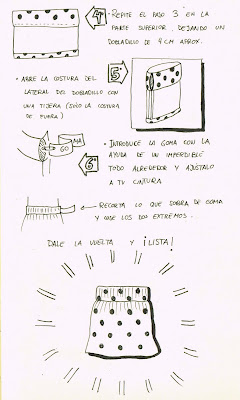 4º
· REPITE EL PASO 3º EN LA
PARTE SUPERIOR, DEJANDO UN
DOBLADILLO DE 4 CM APROX.
· ABRE LA COSTURA DEL
LATERAL DEL DOBLADILLO CON
UNA TIJERA (SOLO LA COSTURA
DE FUERA)
5º
GO
MA
6º
· INTRODUCE LA GOMA CON LA
AYUDA DE UN IMPERDIBLE
TODO ALREDEDOR Y AJÚSTALO
A TU CINTURA
· RECORTA LO QUE SOBRA DE GOMA
Y COSE LOS DOS EXTREMOS.
DALE LA VUELTA Y ¡LISTA!